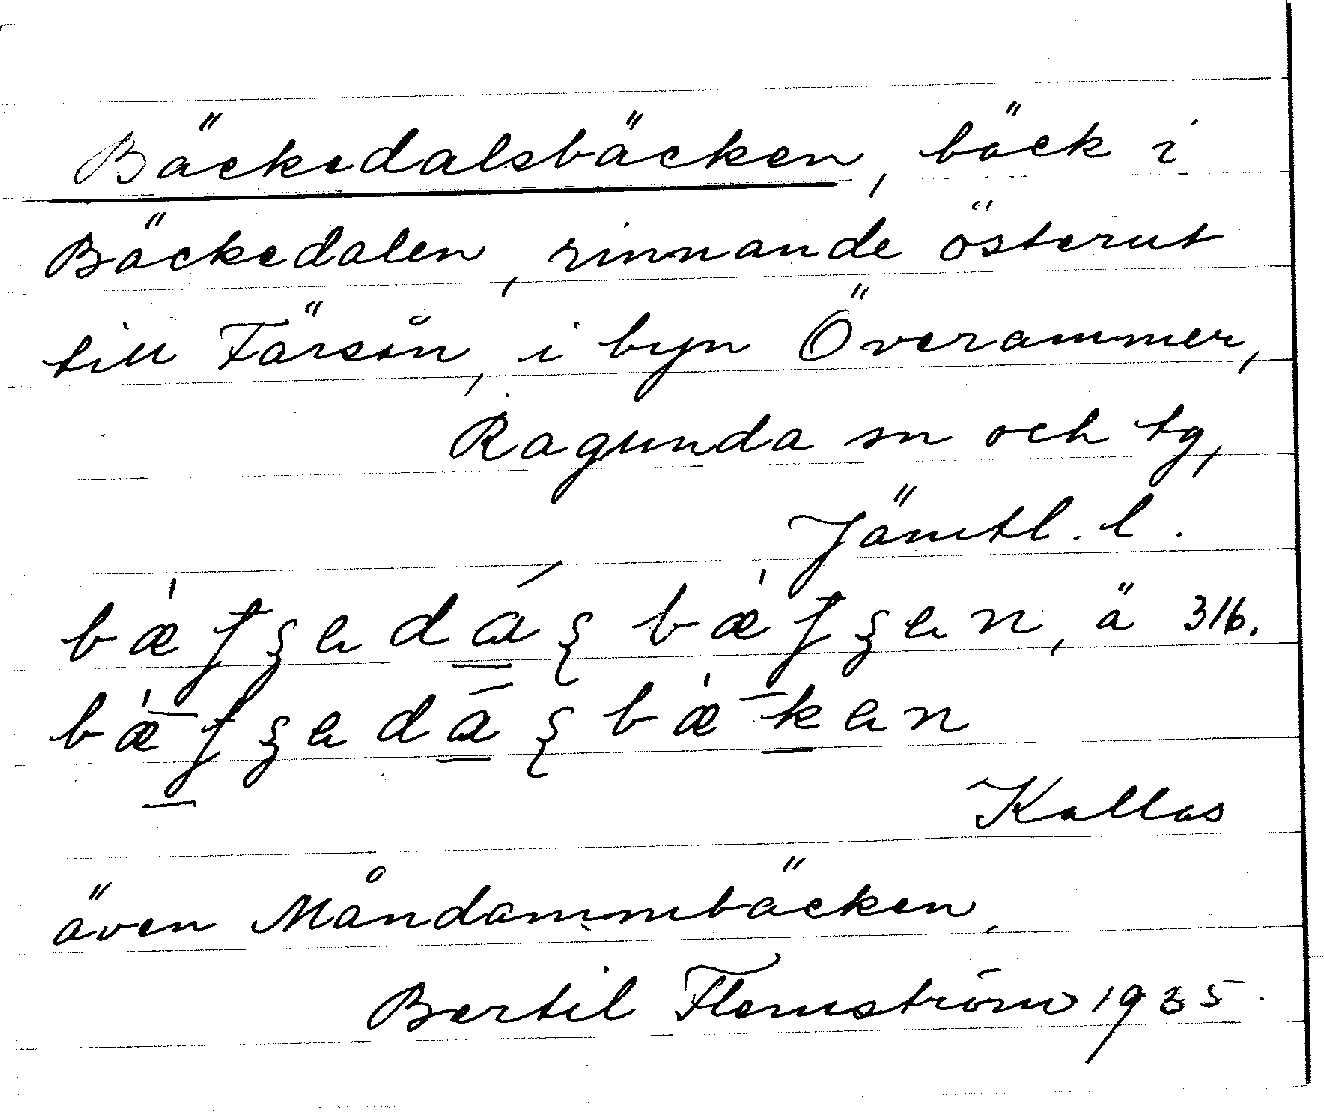 Bäckedalsbäcken, bäck i
Bäckedalen, rinnande österut
till Färsån, i byn Överammer,
Ragunda sn och tg,
Jämtl. l.
ä 316.
Kallas
även Måndammbäcken.
Bertil Flemström 1935.